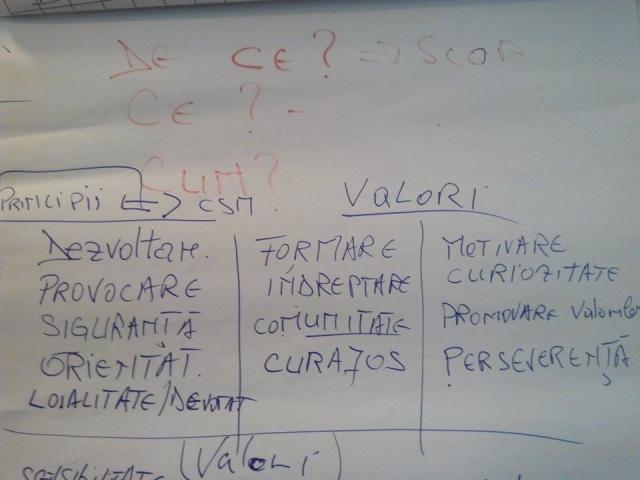 DE CE? => SCOP
CE? -
CUM?
PRINCIPII <-> CSM
VALORI
Dezvoltare.
PROVOCARE
SIGURANȚĂ
ORIENTAT.
LOIALITATE/DEVOTAT
FORMARE
INDREPTARE
COMUNITATE
CURAJOS
MOTIVARE
CURIOZITATE
PROMOVARE Valorilor
PERSEVERENȚĂ
(Valori)